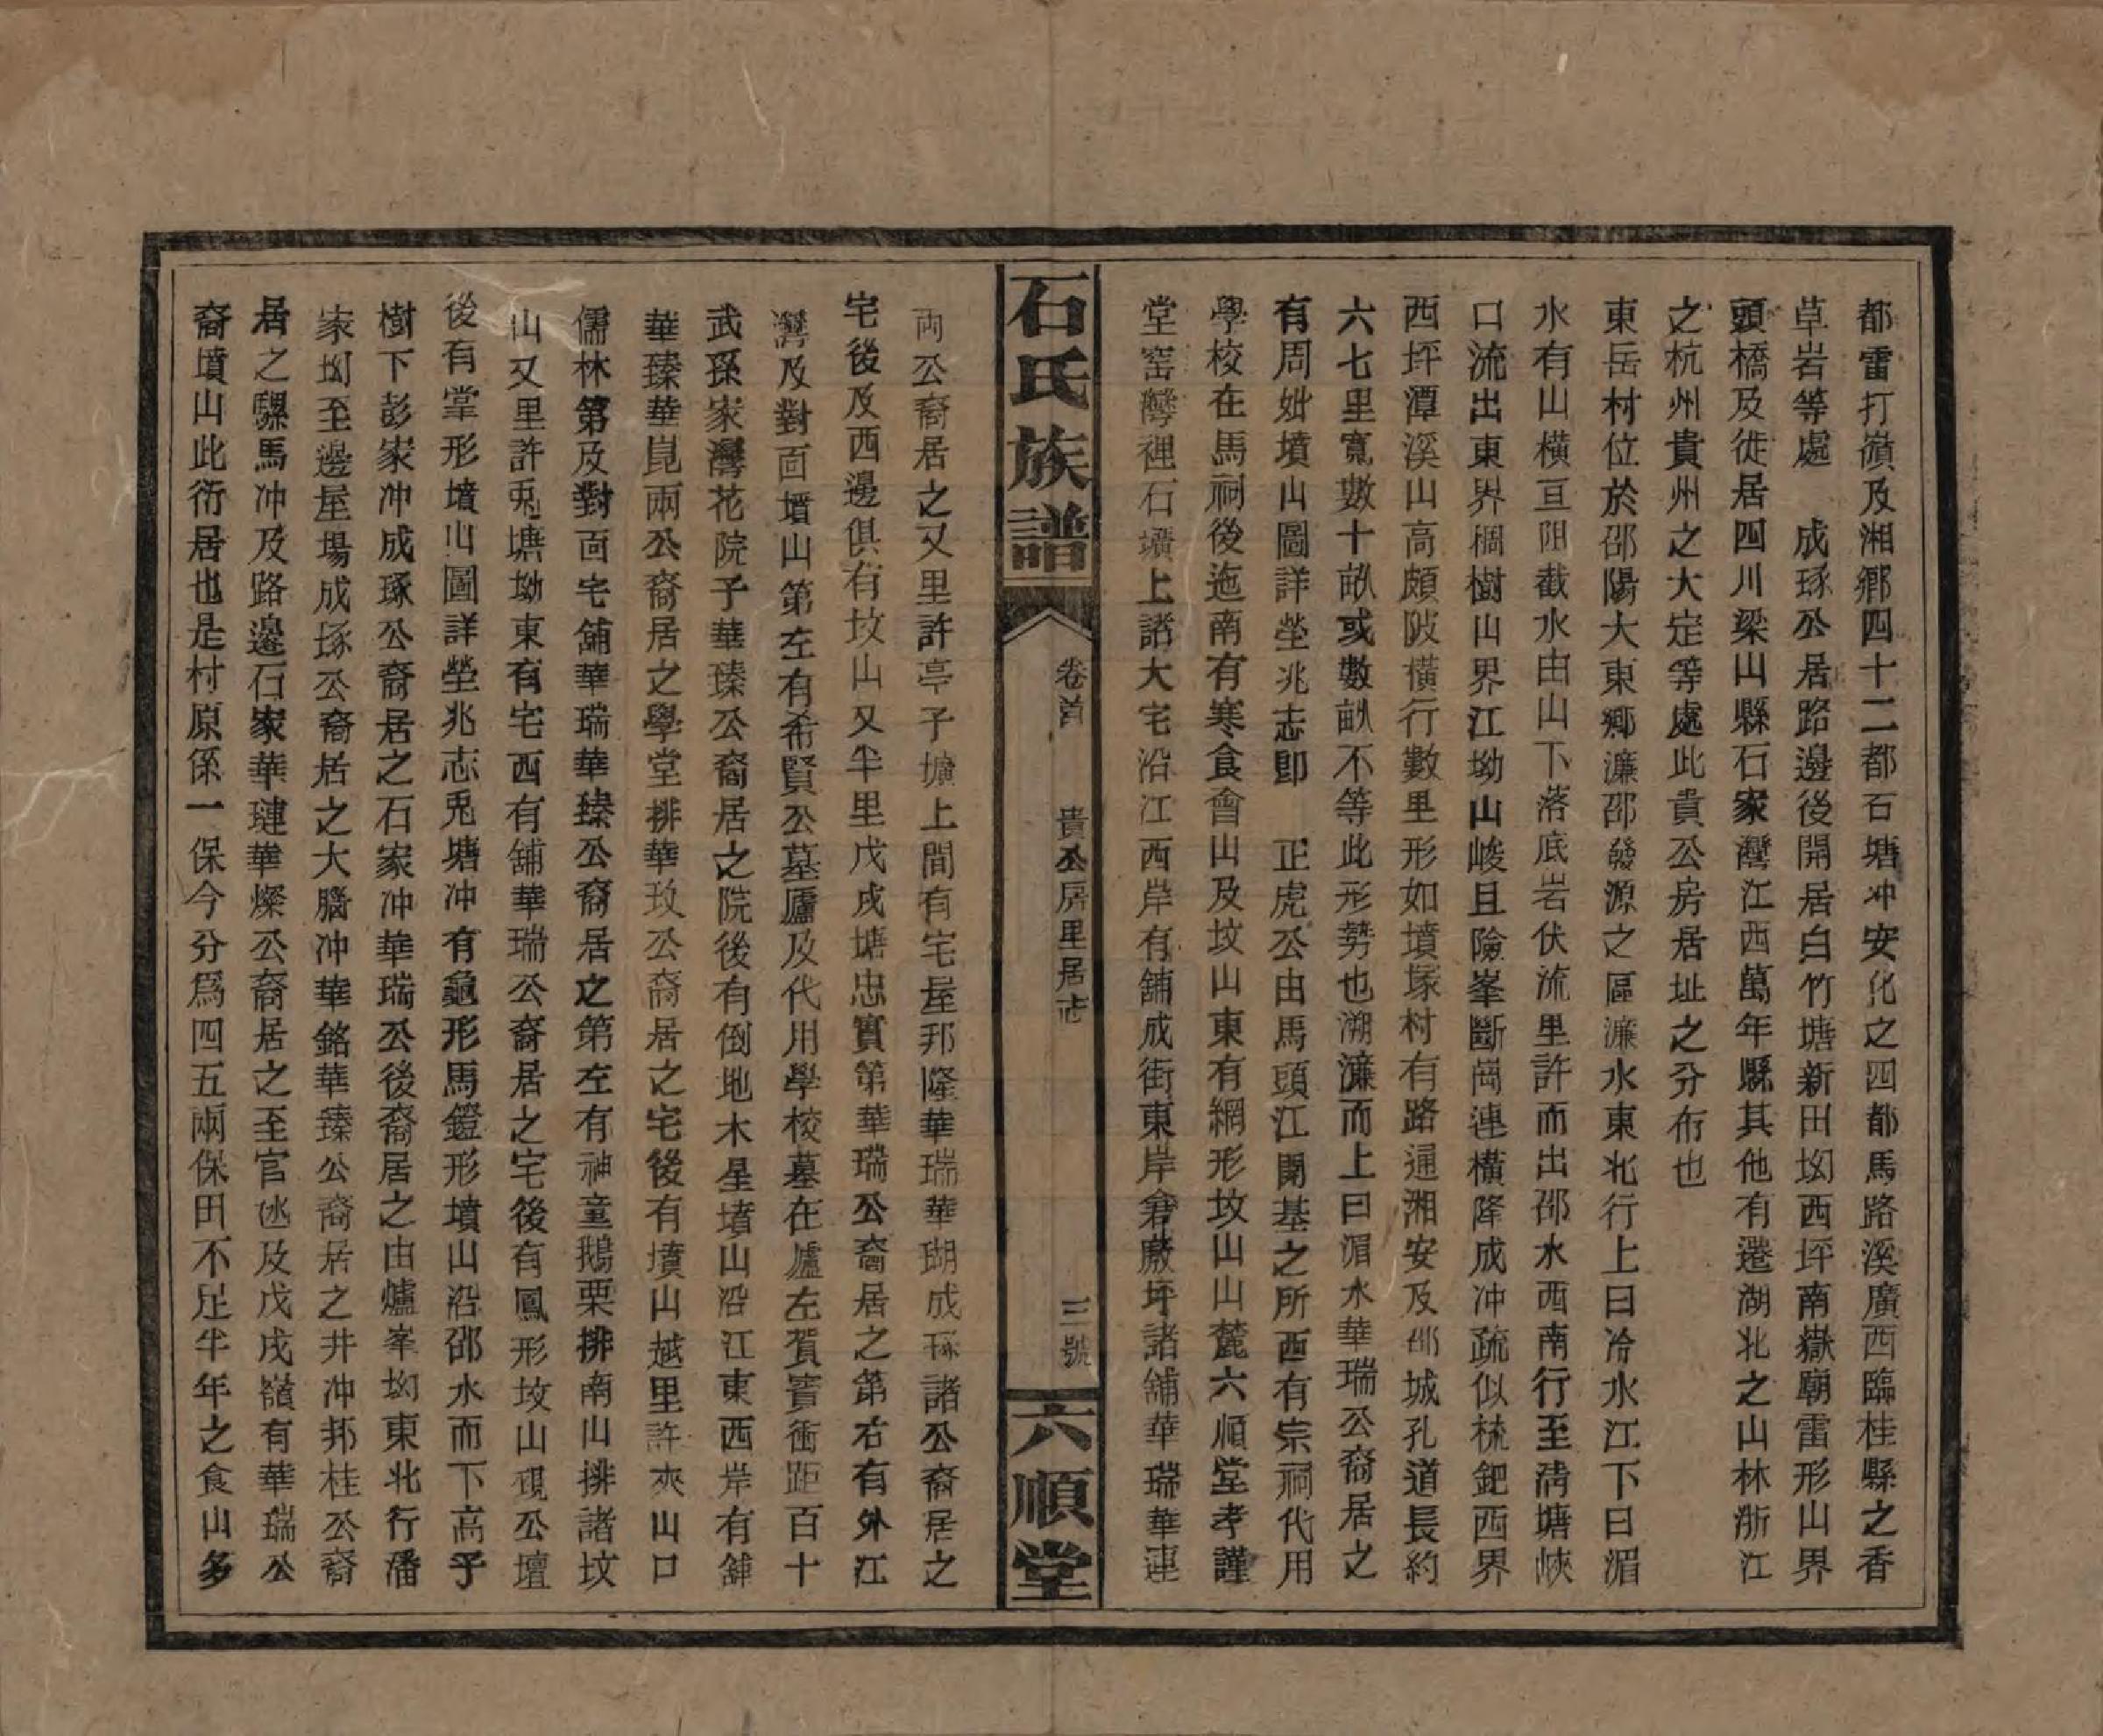 都雷打嶺及湘鄉四十二都石塘冲安化之四都馬路溪廣西臨桂縣之香
草岩等處　成琢公居路邊後開居白竹塘新田坳西坪南嶽廟雷形山界
頭橋及徙居四川梁山縣石家灣江西萬年縣其他有遷湖北之山林浙江
之杭州貴州之大定等處此貴公房居址之分布也
東岳村位於邵陽大東鄉濂邵發源之區濂水東北行上曰冷水江下曰湄
水有山橫亘阻截水由山下落底岩伏流里許而出邵水西南行至淸塘峽
口流出東界棡樹山界江坳山峻且險峯斷崗連橫降成冲疏似梳鈀西界
西坪潭溪山高頗陂橫行數里形如墳塚村有路通湘安及邵城孔道長約
六七里寬數十畝或數畝不等此形勢也溯濂而上曰湄水華瑞公裔居之
有周妣墳山圖詳塋兆志卽　正虎公由馬頭江開基之所西有宗祠代用
學校在馬祠後迤南有寒食會山及坟山東有網形坟山山麓六順堂孝謹
堂窑灣裡石壙上諸大宅沿江西岸有舖成街東岸倉廠坪諸舖華瑞華連
石氏族譜
卷首　貴公房里居志　三號
六順堂
兩公裔居之又里許亭子壙上間有宅屋邦隆華瑞華瑚成琢諸公裔居之
宅後及西邊俱有坟山又半里戊戌塘忠實第華瑞公裔居之第右有外江
灣及對面墳山第左有希賢公墓廬及代用學校墓在廬左賀賓衝距百十
武孫家灣花院子華瑧公裔居之院後有倒地木星墳山沿江東西岸有舖
華臻華崑兩公裔居之學堂排華玫公裔居之宅後有墳山越里許夾山口
儒林第及對面宅舖華瑞華臻公裔居之第左有神童鵝栗排南山排諸坟
山又里許兎塘坳東有宅西有舖華瑞公裔居之宅後有鳳形坟山覌公壇
後有掌形墳山圖詳塋兆志兎塘冲有龜形馬鐙形墳山沿邵水而下高乎
樹下彭家冲成琢公裔居之石家冲華瑞公後裔居之由爐峯坳東北行潘
家坳至邊屋場成琢公裔居之大腦冲華銘華臻公裔居之井冲邦桂公裔
居之騾馬冲及路邊石家華璉華燦公裔居之至官氹及戊戌嶺有華瑞公
裔墳山此衍居也是村原係一保今分爲四五兩保田不足半年之食山多